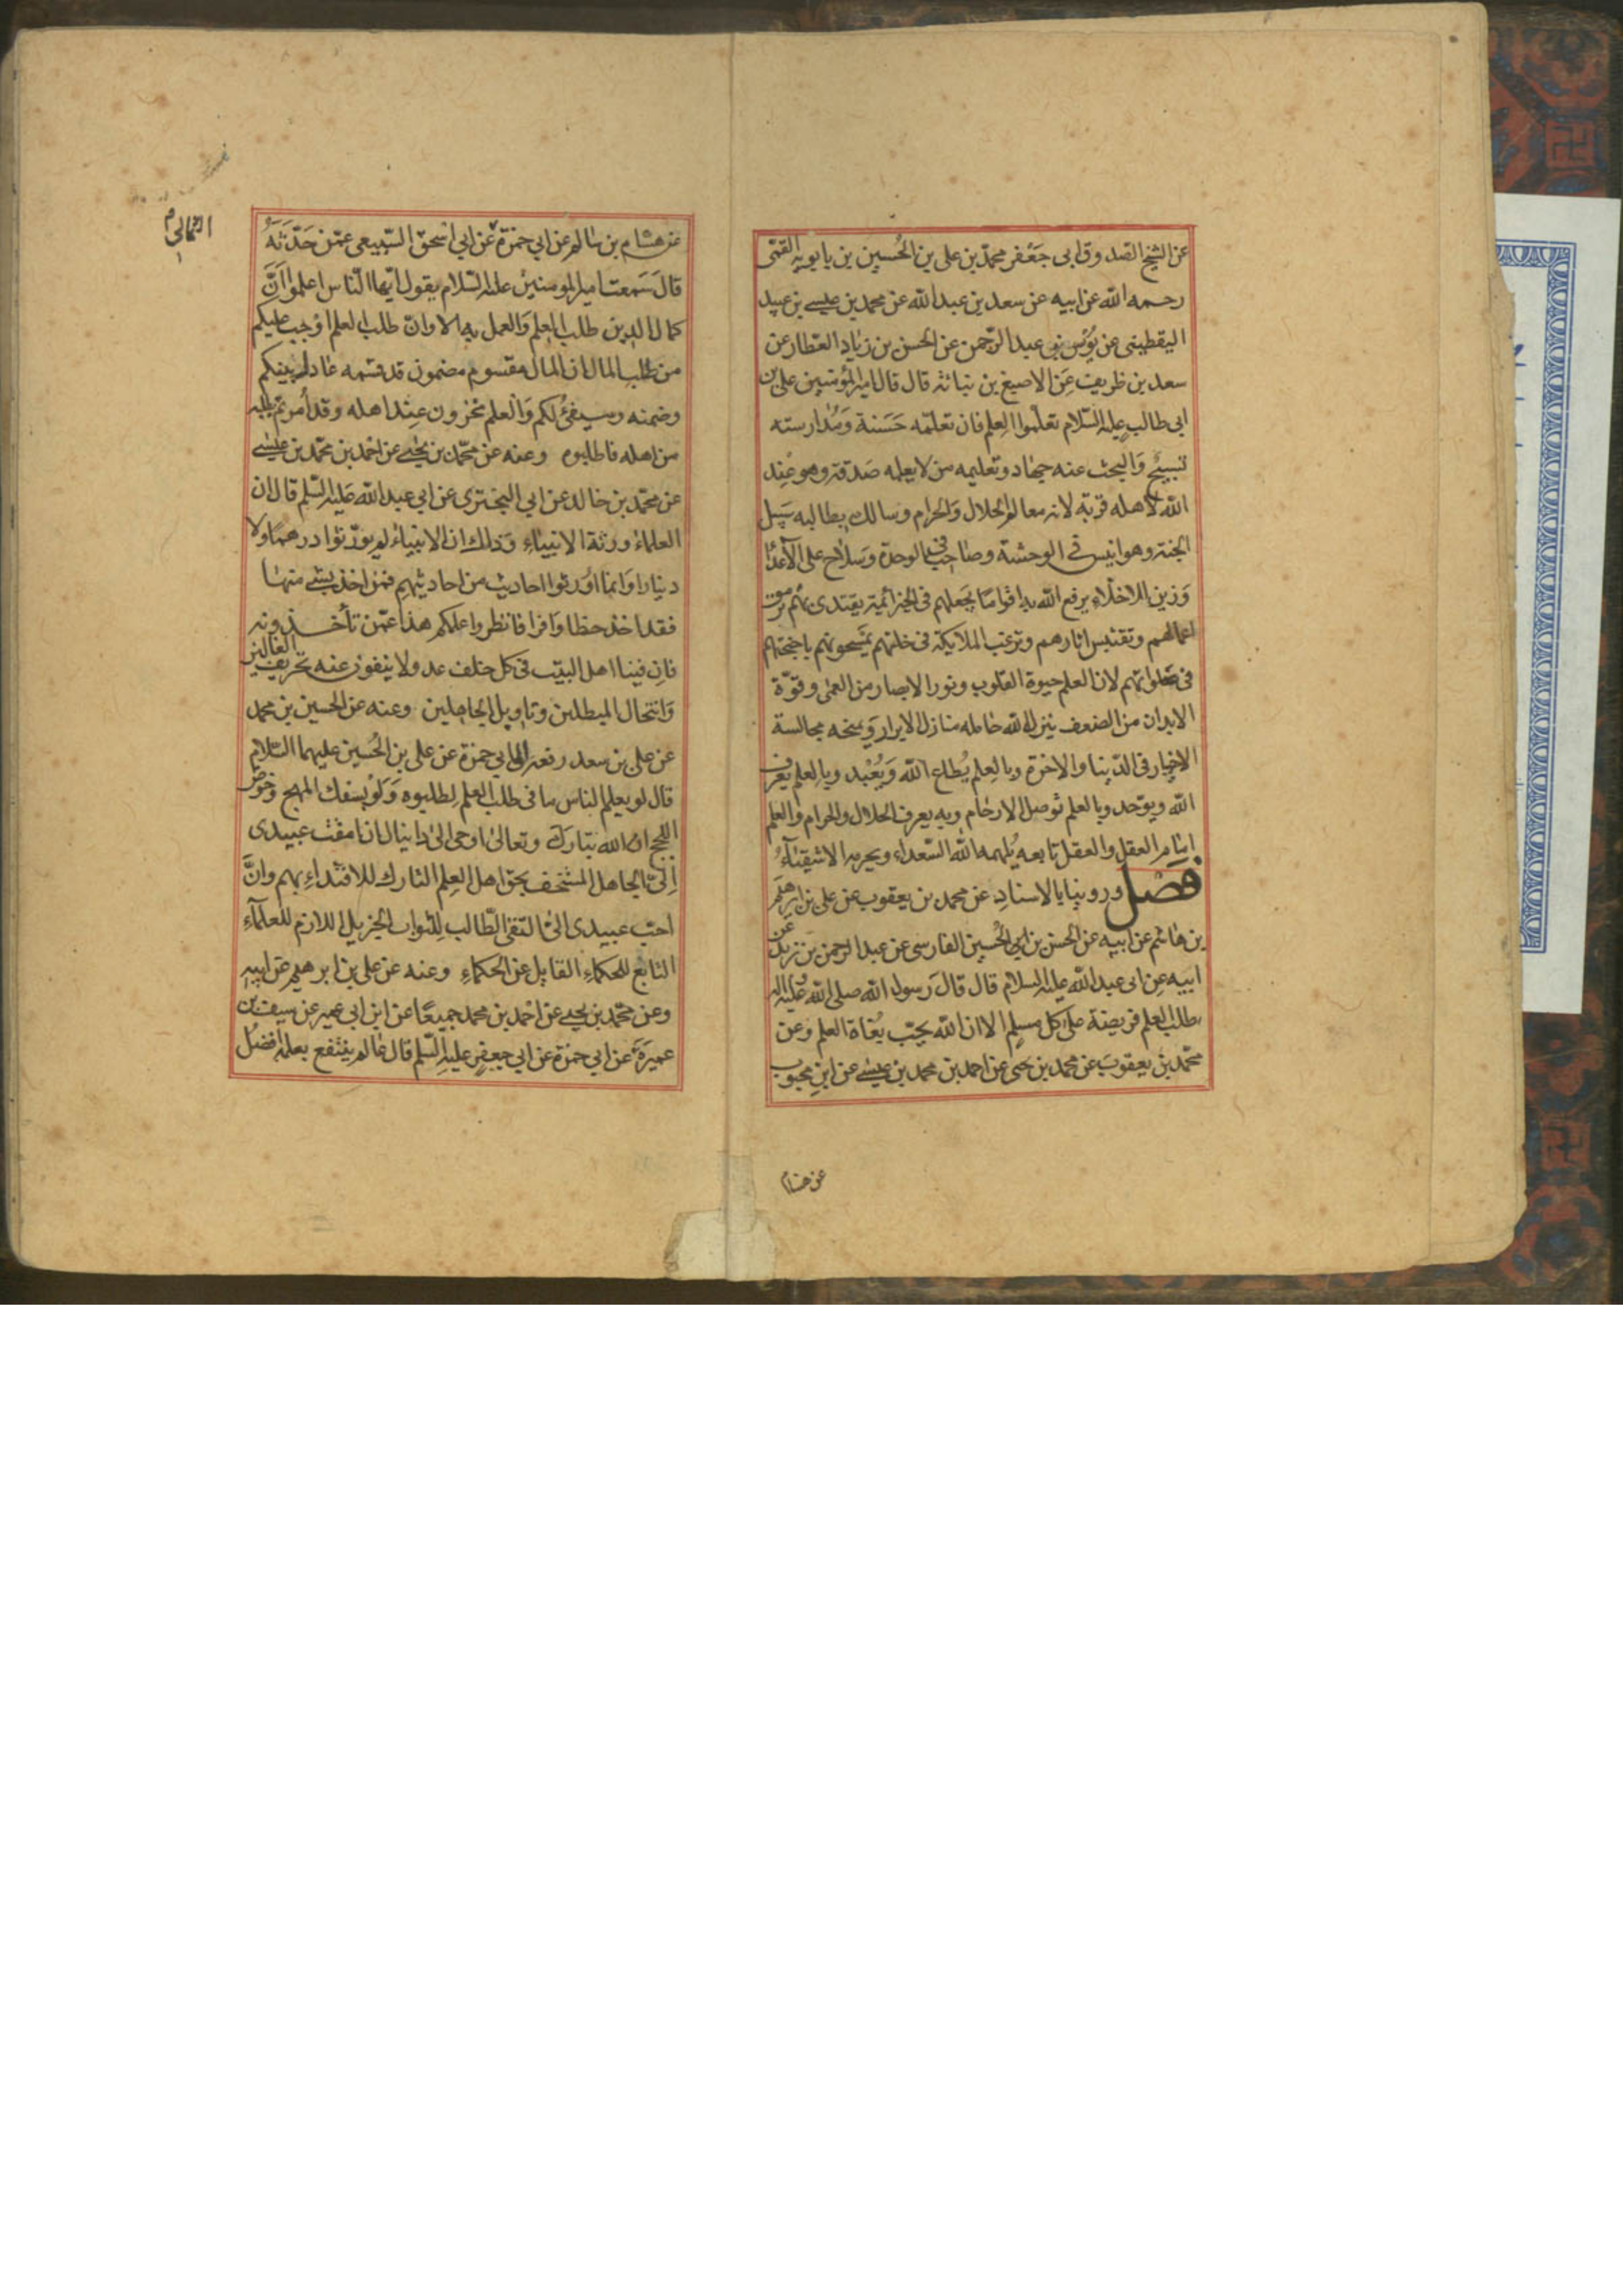 عن الشيخ الصدوق ابى جَعْفر محمّد بن على بن الحُسين بن بابويه القمّى
رحمه الله عن ابيه عن سعد بن عبد الله عن محمد بن عيسى بن عبيد
اليقطينى عن يونس بن عبد الرّحمن عن الحسن بن زياد العطّار عن
سعد بن ظريف عَن الاصبغ بن نباته قال قال امير المؤمنين على بن
ابى طالب عليه السّلام تعلّموا العِلم فان تعلّمه حَسَنة وَمُدارسته
تسبيح وَالبحث عنه جهاد وتعليمه من لا يعلمه صَدقة وهو عِند
الله لاهله قربة لانه معالم الحلال وَالحرام وسالك بطالبه سَبيل
الجنة وهو انيس فى الوحشة وصاحب فى الوحدة وَسلاح على الاَعدَاء
وَزين الاخلّاء يرفع الله به اقوامًا يجعلهم فى الخير ائمّة يقتدى بهم ترمق
اعمالهم وتقتبس اثارهم وترغب الملائكة فى خلتهم يمسحونهم باجنحتهم
فى صَلواتهم لان العلم حيوة القلوب ونور الابصار من العمى وقوّة
الابدان من الضعف ينزل الله حامله منازل الابرار وَيمنحه مجالسة
الاخيار فى الدّنيا والاخرة وبالعِلم يُطاع الله وَيُعْبد وبالعلم يعرف
الله ويوحّد وبالعلم توصل الارحام وبه يعرف الحلال والحرام وَالعلم
امام العقل والعقل تابعه يُلهمه الله السّعداء ويحرمه الاشقِيَاءُ
فصل وروينا بالاسنادِ عن محمد بن يعقوب عن على بن ابرهيم
بن هاشم عن ابيه عن الحسن بن ابى الحُسين الفارسى عن عبد الرحمن بن زيد عن
ابيه عن ابى عبد الله عليه السلام قال قال رَسول الله صلى الله عليه واله
طلب العلم فريضة على كل مسلم الا ان الله يحبّ بُغاة العلم وعن
محمّد بن يعقوب عن محمد بن يحيى عن احمد بن محمد بن عيسى عن ابن محبوب
عن هشام
عن هشام بن سالم عن ابي حمزة عن ابي اسحق السّبيعى عمّن حَدّثَهُ
قالَ سَمعت امير المومنينَ عليه السّلام يقول ايّها النّاس اعلموا اَنَّ
كمال الدين طلب العِلم وَالعمل به الا وانّ طلب العلم اوْجب عليكم
من طلب المال ان المال مقسوم مضمون قد قسّمه عادل بينكم
وضمنه وسيفىُ لكم وَالعلم مخزون عِند اهله وقد اُمرتم بطلبه
من اهله فاطلبوه وعنه عن محمّد بن يحيى عن احْمد بن محمّد بن عيسى
عن محمّد بن خالد عن ابي البخترى عن ابي عبد الله عَليه السّلم قال ان
العلماءُ ورثة الانبياءِ وَذلك ان الانبياءُ لم يورّثوا درهمًا ولا
دينارا وَانما اوْرثوا احاديث من احاديثهم فمن اخذ بشىء منها
فقد اخذ حظا وَافرا فانظروا علمكم هذا عمّن تأخذونه
فان فينا اهل البيت فى كل خلف عدولا ينفون عنه تحريف الغالين
وَانتحال المبطلين وتاويل الجاهلين وعنه عن الحسين بن محمد
عن على بن سعد رفعه الى ابي حمزة عن على بن الحُسين عليهما السّلام
قال لو يعلم الناس ما فى طلب العلم لطلبوه وَلَوْ بسفك المهج وخوض
اللجج ان الله تبارَك وتعالى اوحى الى دانيال ان امقت عبيدى
اِلىّ الجاهل المستخف بحق اهل العِلم التارك للاقتداءِ بهم وانَّ
احبّ عبيدى الىّ التّقى الطّالب للثواب الجزيل اللازم للعلماء
التابع للحكماءِ القابل عن الحكماءِ وعنه عن على بن ابرهيم عن ابيه
وعن محمّد بن يحيى عن احْمد بن محمد جميعًا عن ابن ابي عمير عن سيف بن
عميرَة عن ابي حمزة عن ابي جعفرٍ عليهِ السّلم قال عالم ينتفع بعلمه افضلُ
الثمالى